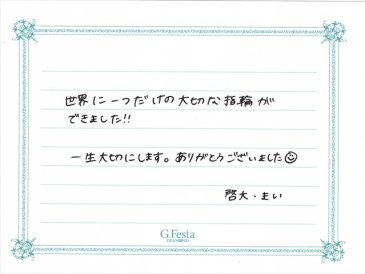 世界に一つだけの大切な指輪が
できました!!
一生大切にします。ありがとうございました☺
啓大・まい
G.Festa